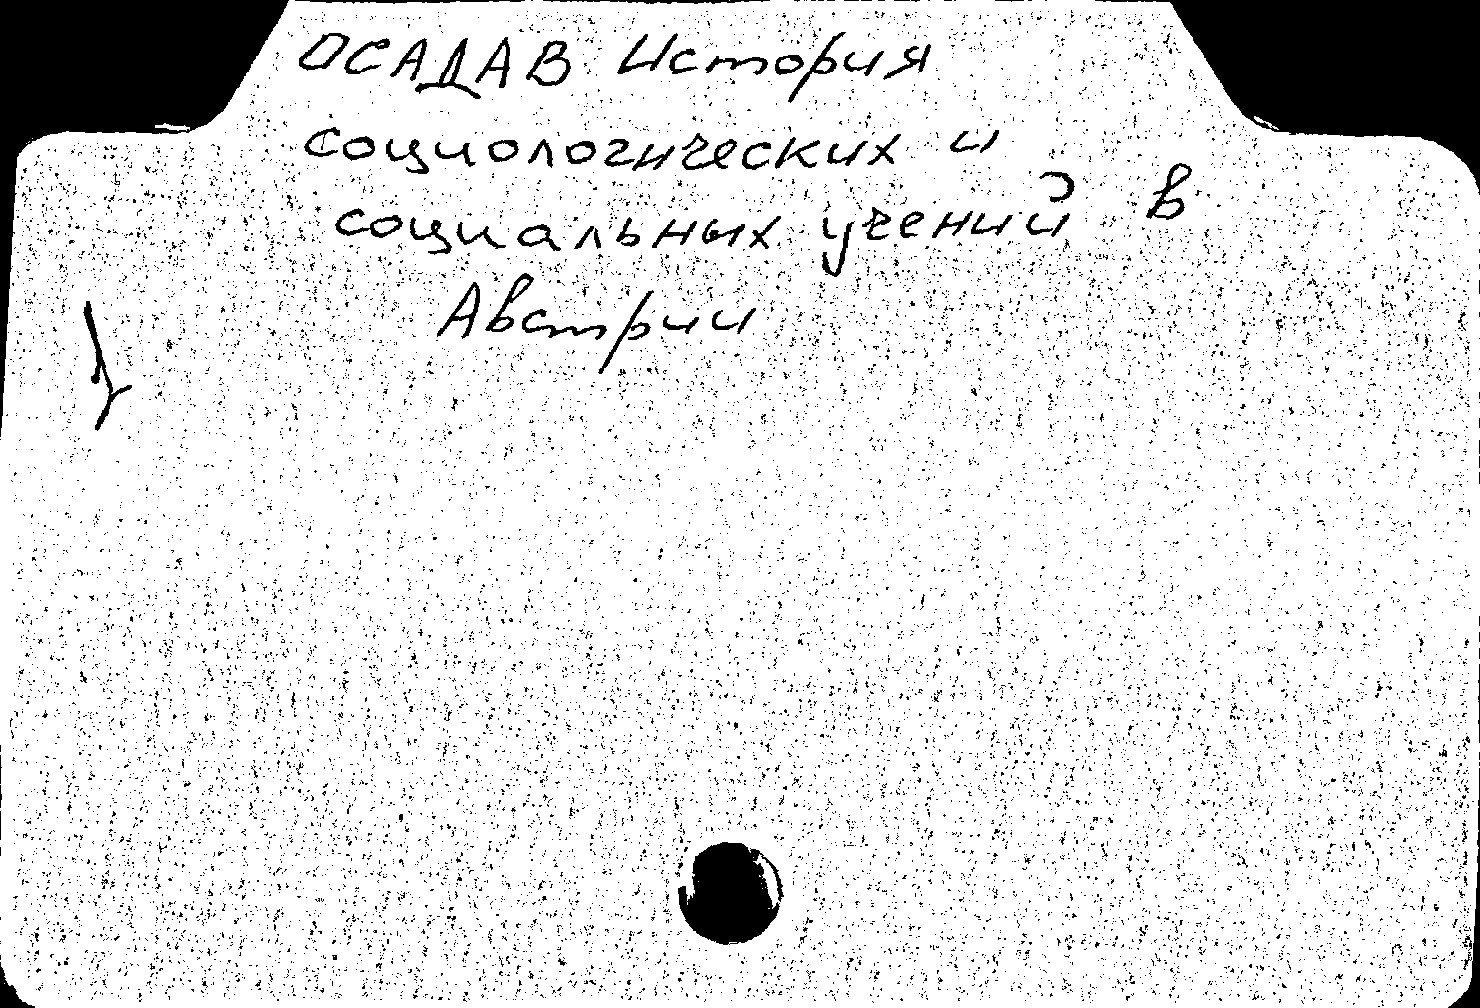 ОСАДАВ История
социологических и
социальных учений в
Австрии